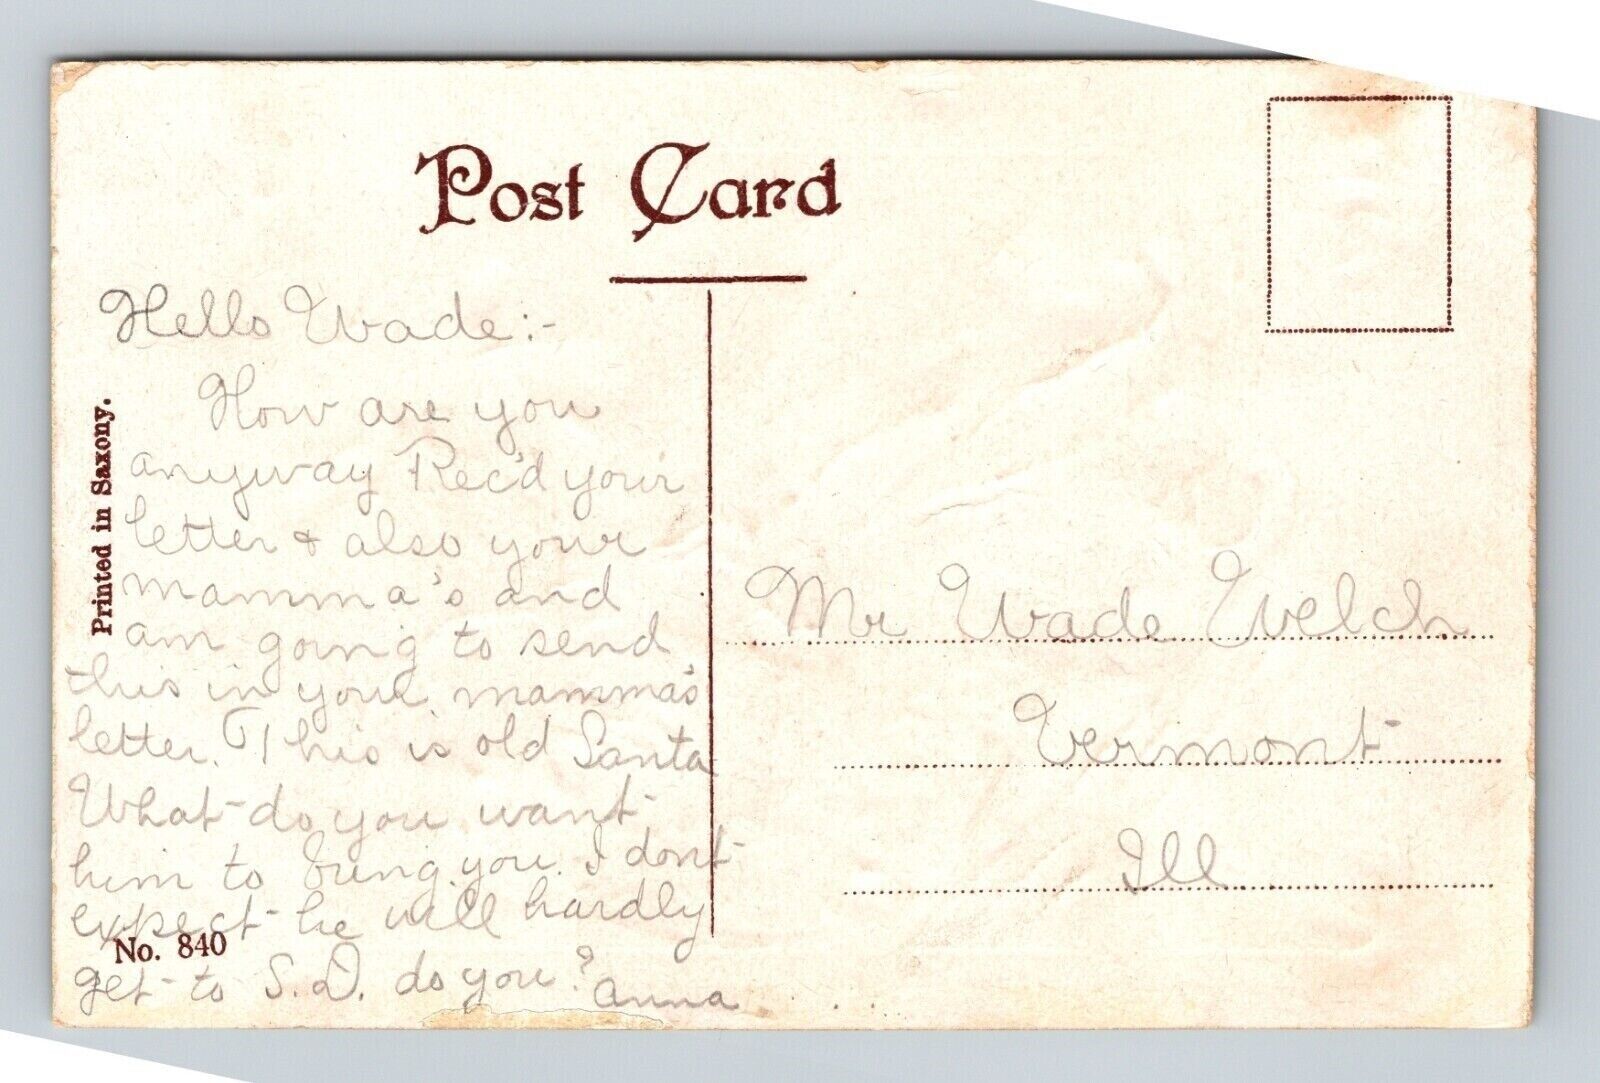 Post Card
Hello Wade:-
How are you
anyway Rec'd your
letter + also your
mamma's and
am going to send
this in your mamma's
letter. This is old Santa
What do you want
him to bring you. I dont
expect he will hardly
get to S.D. do you? Anna
Printed in Saxony.
No. 840
Mr Wade Welch
Vermont
Ill